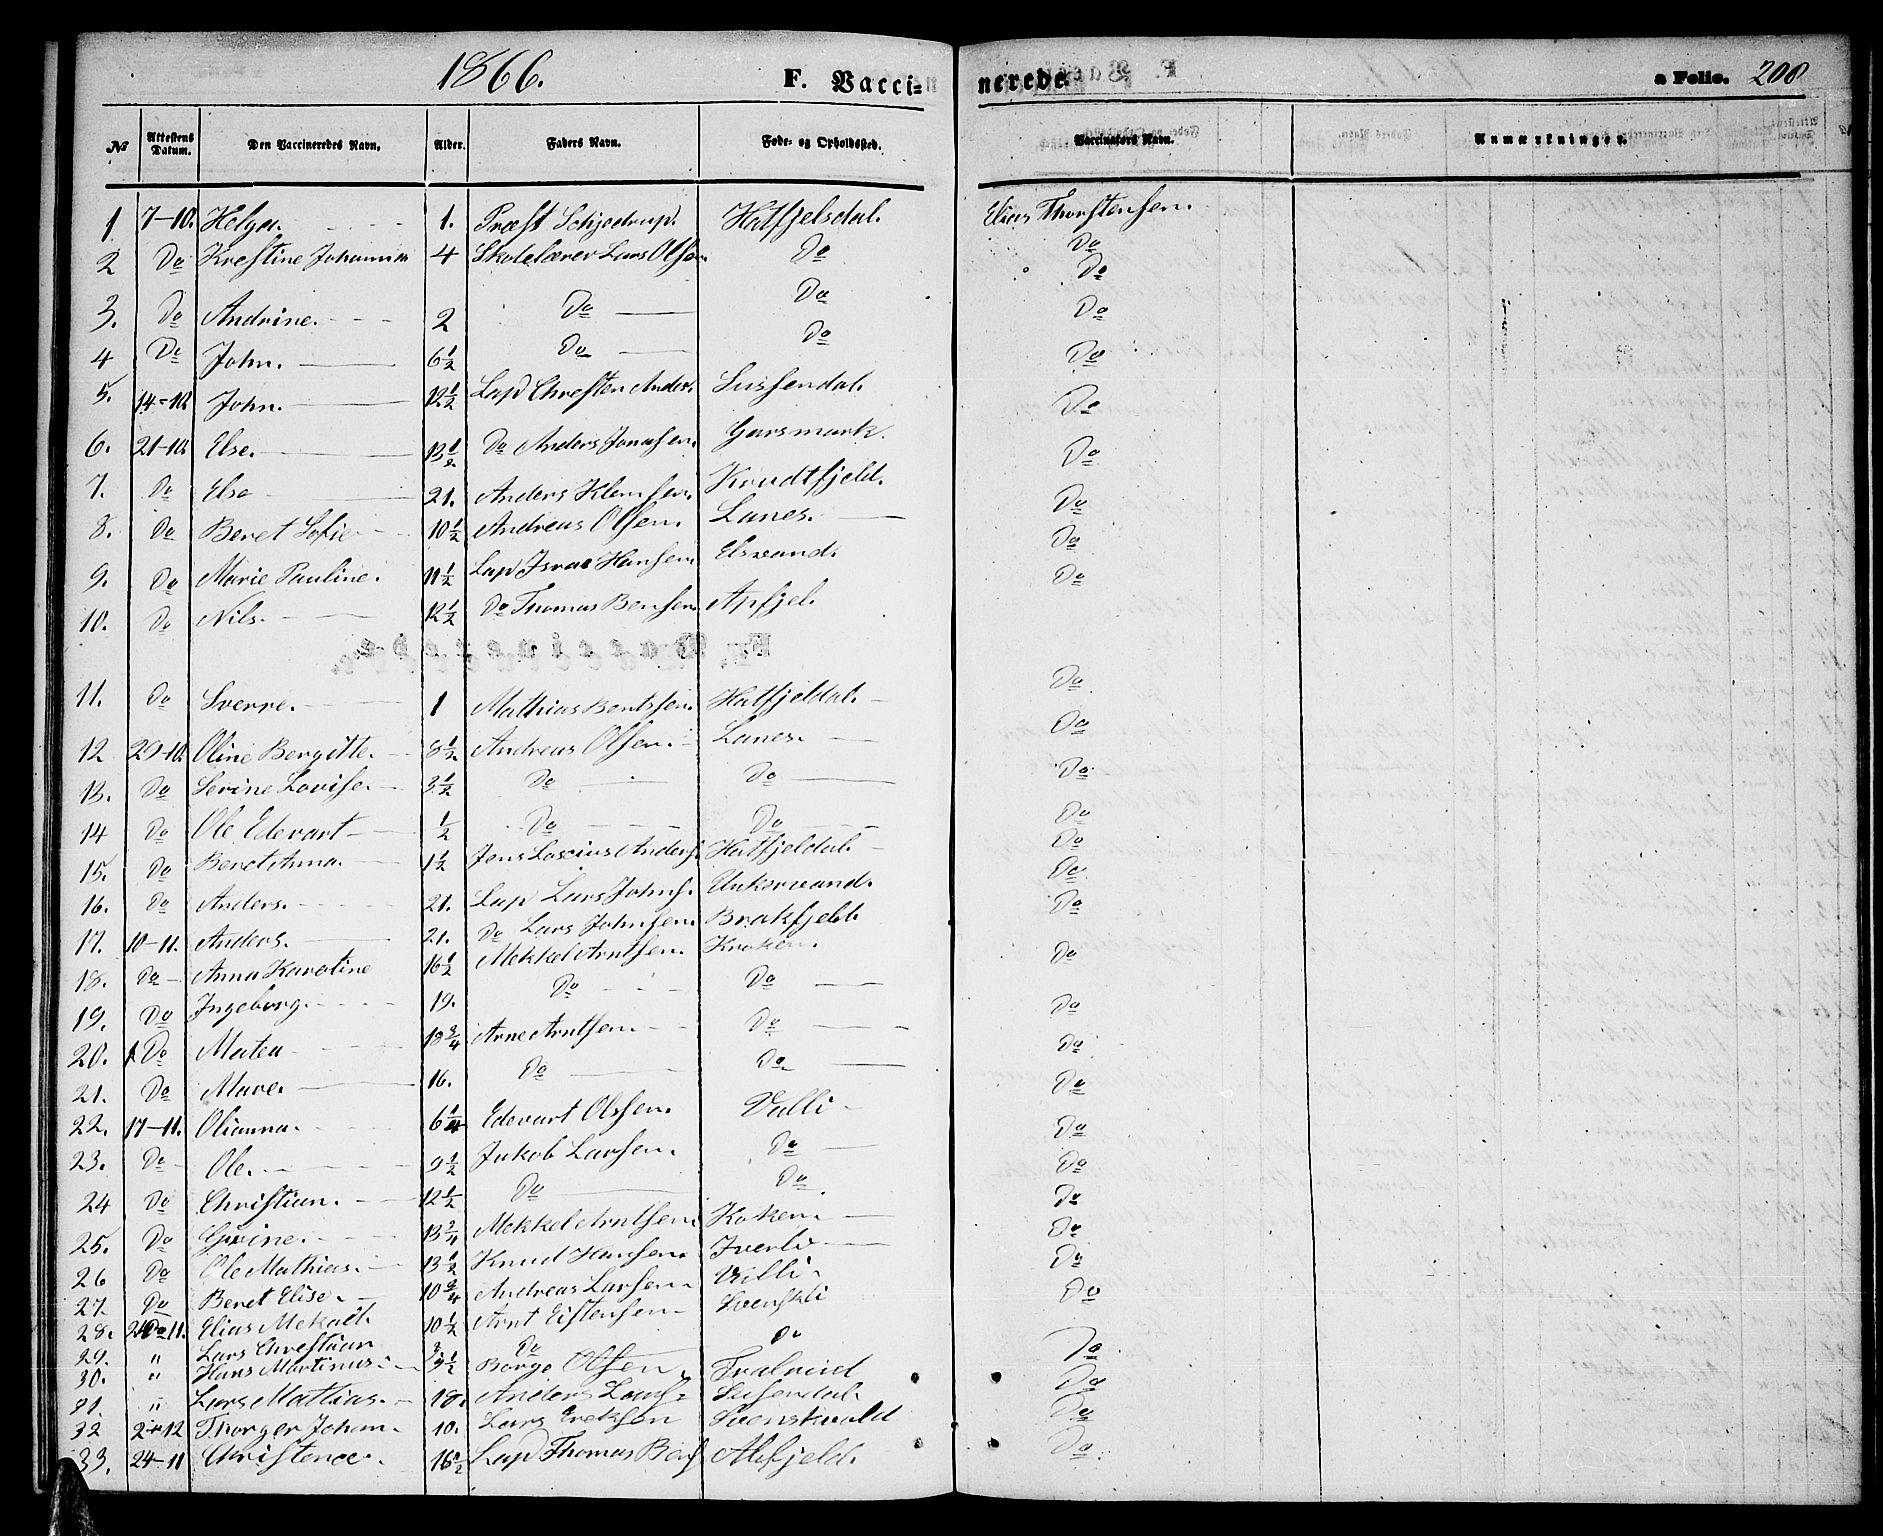 1866.
F. Vacci-
nerede.
a Folio. 208
№ Attestens Datum. Den Vaccineredes Navn. Alder. Faders Navn. Føde- og Opholdssted. Vaccinators Navn. Anmærkninger.
1 7-10. Helga. 1. Præst Schjedrup. Hatfjelsdal. Elias Thorstensen.
2 Do Krestine Johanna 4 Skolelærer Lars Olsen Do Do
Do
3. Do Andrine. 2 Do Do Do
4 Do John. 6½ Do Do Do
5. 14-10. John. 12½ Lap Chresten Anders. Sussendal. Do
6. 21-10. Else. 13½. Do Anders Jonasen. Garsmark. Do
7. Do Else 21. Anders Klemsen. Krudtfjeld. Do
8. Do Beret Sofie 10½ Andreas Olsen. Lanes. Do
9. Do Marie Pauline. 11½ Lap Israe Hansen Elsvand. Do
10. Do Nils. 12½ Do Thomas Bensen Apfjel.
11. Do Sverre. 1 Mathias Bentsen. Hatfjeldal. Do
12 29-10 Oline Bergitte. 8½ Andreas Olsen. Lanes. Do
13. Do Serine Lovise. 3½ Do Do Do
14 Do Ole Edevart ½ Do Do Do
15. Do Beret Anna. 1½ Jens Anders. Hatfjeldal. Do
16. Do Anders. 21. Lap Lars Johns. Unkervand. Do
17. 10-11. Anders. 21. Do Lars Johnsen. Brakfjeld. Do
18. Do Anna Karoline 16½ Mekkel Arntsen. Kroken. Do
19. Do Ingeborg. 19. Do Do Do
20. Do Matea 18¾ Arne Arntsen. Do Do
21. Do Mare. 16. Do Do Do
22. 17-11. Olianna. 6¼ Edevart Olssen. Valli Do
23. Do Ole. 9½ Jakob Larsen. Do Do
24 Do Christian. 12½ Do Do Do
25. Do 13¾ Mekkel Arntsen Koken. Do
26 Do Ole Mathias. 13½ Knud Hansen. Iverli Do
27 Do Beret Elise. 10¾ Andreas Larsen Villi Do
28. 11. Elias Mekael. 10½ Arnt Eistensen Svenskli
29. " Lars Chrestian 3. Do Do Do
30. " Hans Martinus. 3½ Børge Olsen Do
31. " Lars Mathias. 18. Anders Lars. Susendal. Do
32 2-12 Thorger Johan. 10. Lars Ereksen Svenskvold Do
33. 24-11 Christence. 16½ Lap Thomas Bens Abfjeld.